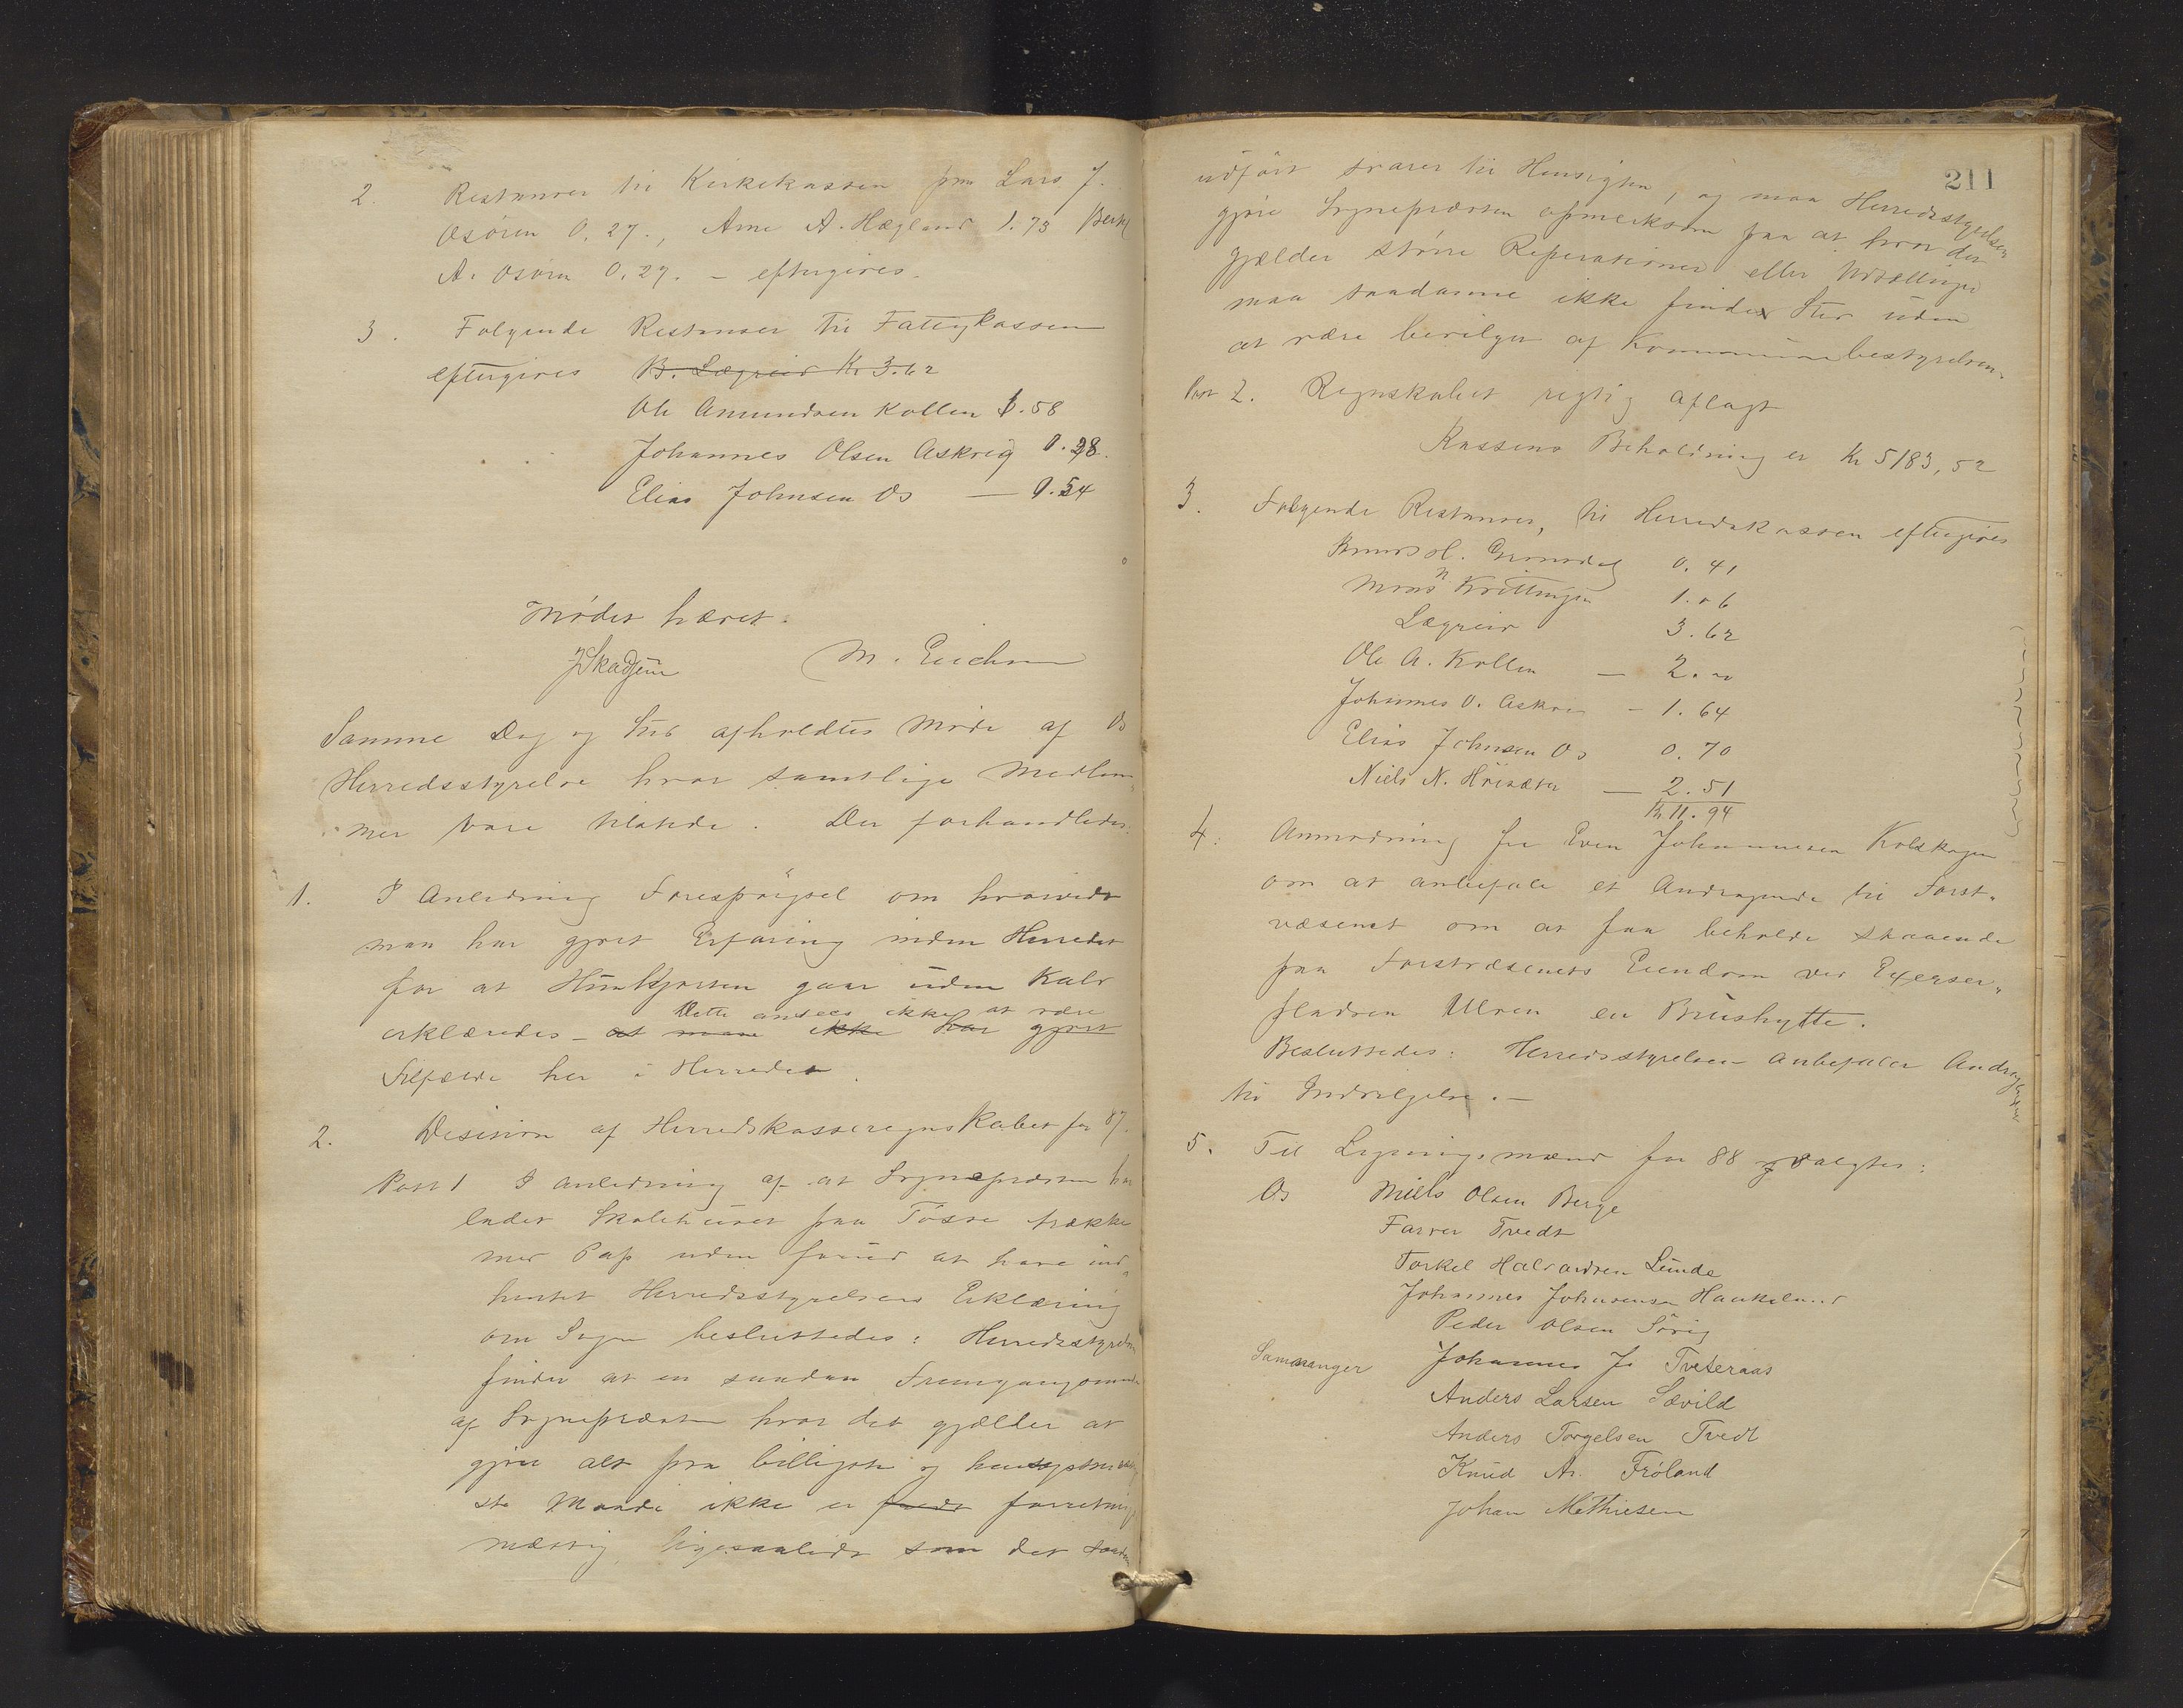 2. Restancer til Kirkekassen fra Lars J.
Osøren 0.27., Arne A. Hægland 1.73
A. Osøren 0.27. – eftergives.
3. Følgende Restancer til Fattigkassen
eftergives B. Lægreid Kr 3.62
Ole Amundsen Kollen 1.58
Johannes Olsen Askvig 0.38.
Elias Johnsen Os — 0.54
Mødet hævet.
M.
Samme Dag og Sted afholdtes Møde af Os
Herredsstyrelse hvor samtlige Medlem-
mer vare tilstede. Der forhandledes:
1. I Anledning Forespørgsel om hvorvidt
man har gjort Erfaring inden Herredet
for at Hunhjorten gaar uden Kalv
Dette ansees ikke at være
erklæredes – at man ikke har gjort
Tilfælde her i Herredet.
2. Desision af Herredskasseregnskabet for 87.
Post 1 I Anledning af at Sognepræsten har
ladet Skolehuset paa Tøsse trække
med Pap uden forud at have ind-
hentet Herredsstyrelsens Erklæring
om Sagen besluttedes: Herredsstyrelsen
finder at en saadan Fremgangsmaade
af Sognepræsten hvor det gjælder at
gjøre alt paa billigste og hensigtsmæssig
ste Maade ikke er forretnings
mæssig ligesaalidt som det saaledes
211
udført svarer til Hensigten, og maa Herredsstyrelsen
gjøre Sognepræsten opmerksom paa at hvor det
gjælder større Reperationer eller Udstillinger
maa saadanne ikke finde Sted uden
at være bevilget af Kommunebestyrelsen.
Post 2. Regnskabet rigtig aflagt
Kassens Beholdning er Kr 5183,52
3. Følgende Restancer, til Herredskassen eftergives
Knud Ol. Grønsdal 0.41
Mons N Krottingen 1.06
Lægreid 3.62
Ole A. Kollen — 2.00
Johannes O. Askvig – 1.64
Elias Johnsen Os 0.70
Niels N. Hvisæter — 2.51
Kr 11.94
4. Anmodning fra Even Johannesen Kolskogen
om at anbefale et Andragende til Forst-
væsenet om at faa beholde staaende
paa Forstvæsenets Eiendom ved Exerser-
pladsen Ulven en Brushytte.
Besluttedes: Herredsstyrelsen anbefaler Andragendet
til Indvilgelse. –
5. Til Ligningsmænd for 88 valgtes:
Os Niels Olsen Berge
Farver Tvedt
Torkel Halvardsen Lunde
Johannes Johannesen Haukeland
Peder Olsen Sørvig
Samnanger Johannes J. Tveteraas
Anders Larsen Sævild
Anders Torgelsen Tvedt
Knud Ar. Frøland
Johan Mathiesen